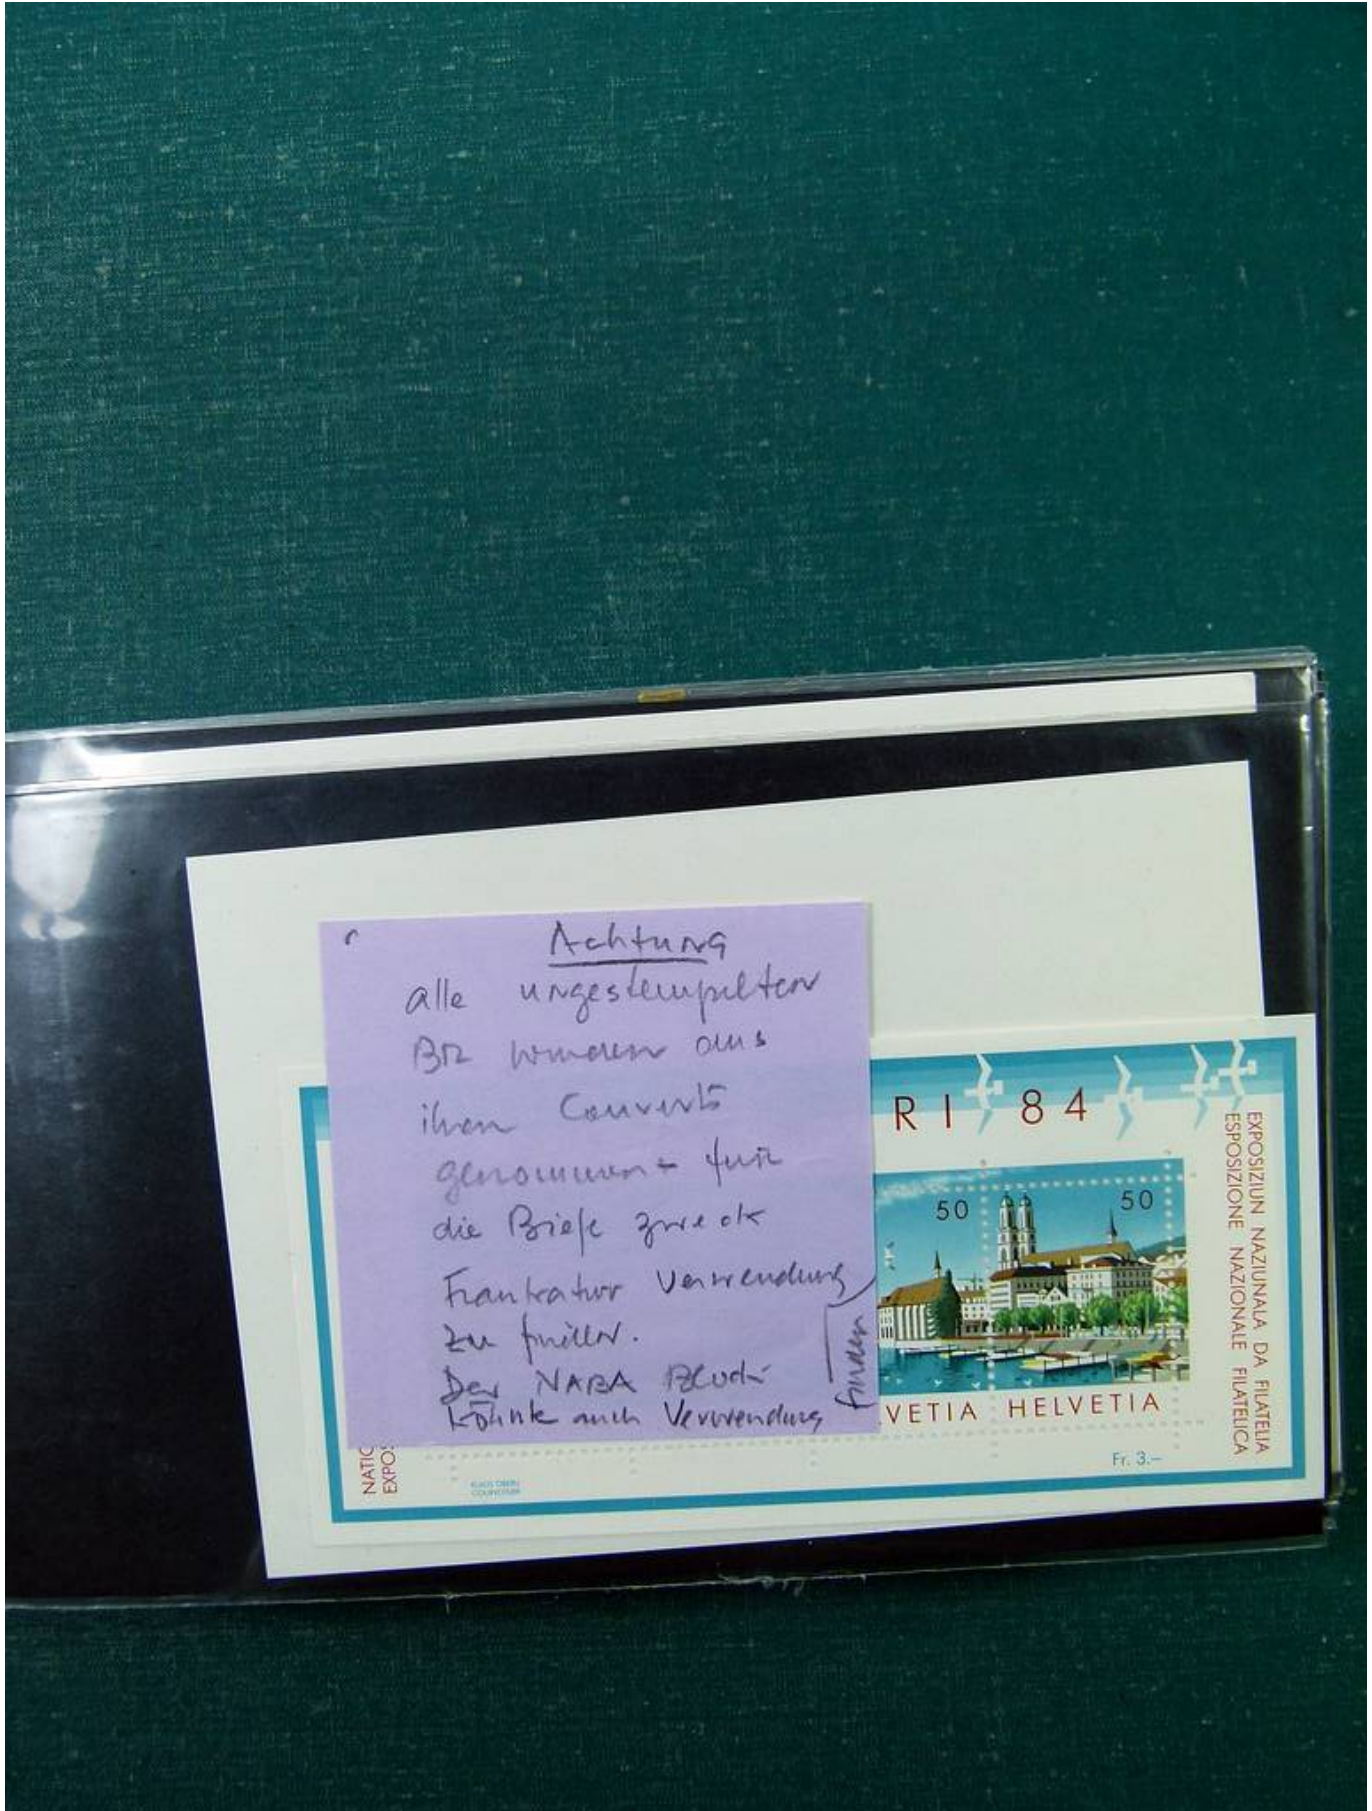 Achtung
alle ungestempelten
wurden aus
ihren Couverts
genommen + für
die Briefe zweck
Frankatur Verwendung
zu
Der NABA Block
könnte auch Verwendung
finden
RI 84
50
50
VETIA HELVETIA
Fr. 3.–
EXPOSIZIUN NAZIUNALA DA FILATELIA
ESPOSIZIONE NAZIONALE FILATELICA
NATIO
EXPOS